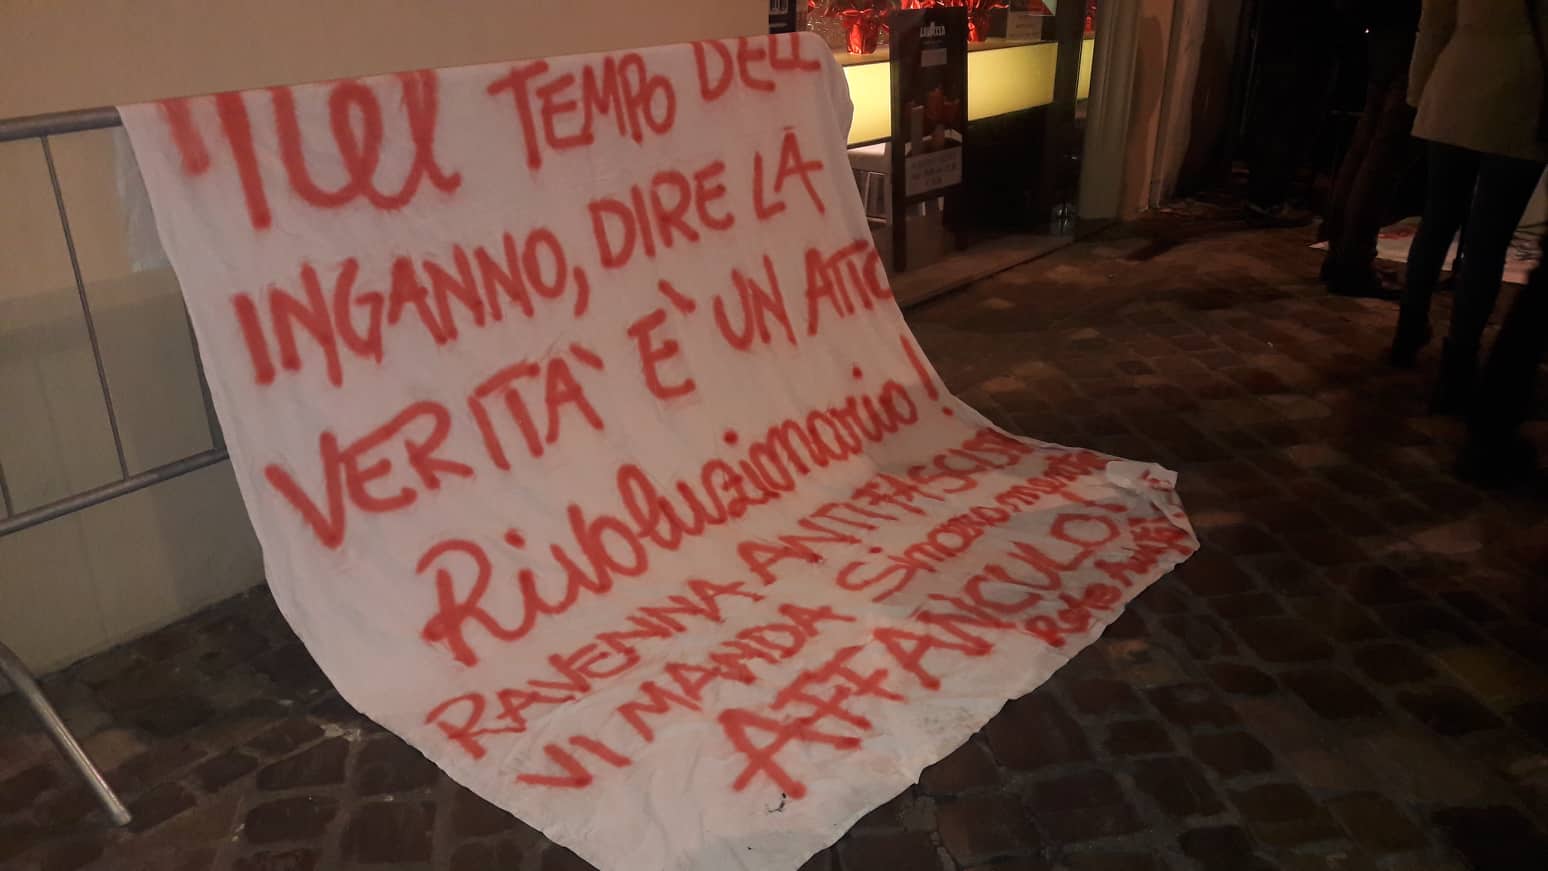 Nel TEMPO DELL
INGANNO, DIRE LA
VERITA' E' UN ATTO
Rivoluzionario!
RAVENNA ANTIFASCISTA
VI MANDA Sinceramente
AFFANCULO!
LAVAZZA